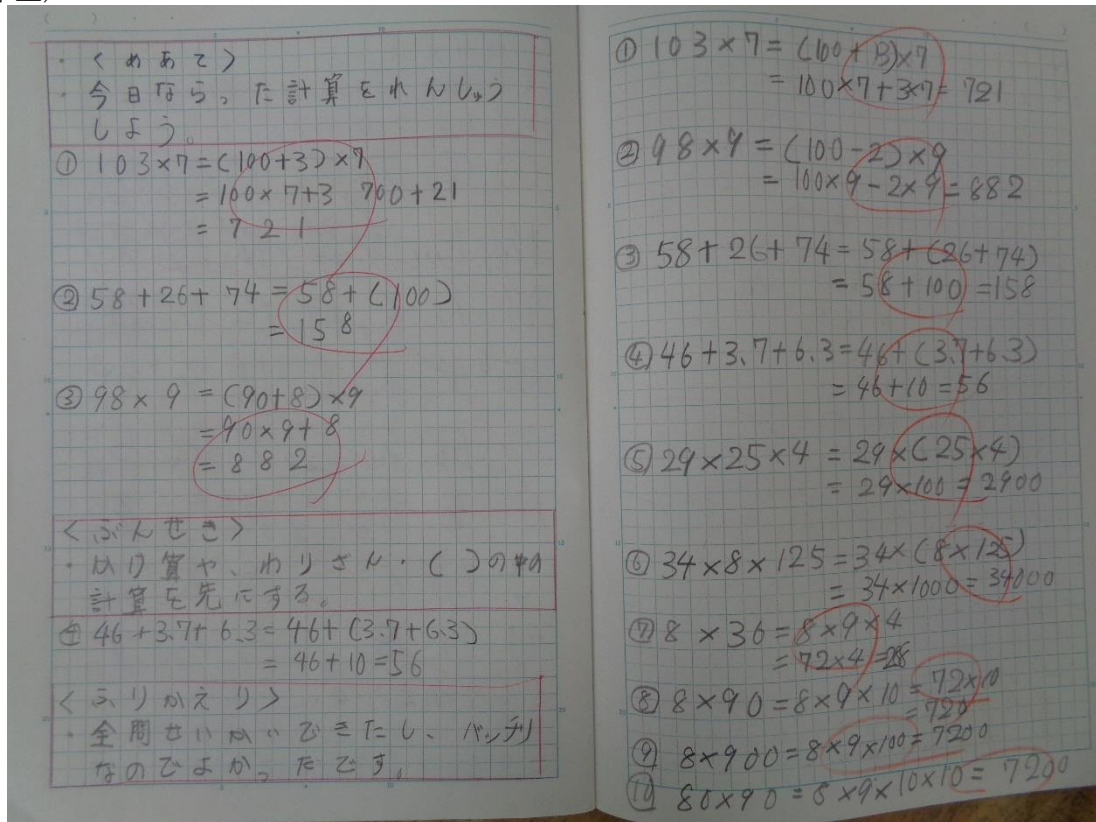 ・〈めあて〉
・今日ならった計算をれんしゅう
しよう。
① 103×7=(100+3)×7
=100×7+3 700+21
=721
② 58+26+74=58+(100)
=158
③ 98×9=(90+8)×9
=90×9+8
=882
〈ぶんせき〉
・かけ算や、わりざん・( )の中の
計算を先にする。
④ 46+3.7+6.3=46+(3.7+6.3)
=46+10=56
〈ふりかえり〉
・全問せいかいできたし、バッチリ
なのでよかったです。
① 103×7=(100+3)×7
=100×7+3×7=721
② 98×9=(100-2)×9
=100×9-2×9=882
③ 58+26+74=58+(26+74)
=58+100=158
④ 46+3.7+6.3=46+(3.7+6.3)
=46+10=56
⑤ 29×25×4=29×(25×4)
=29×100=2900
⑥ 34×8×125=34×(8×125)
=34×1000=34000
⑦ 8×36=8×9×4
=72×4=
⑧ 8×90=8×9×10=72×10
=720
⑨ 8×900=8×9×100=7200
⑩ 80×90=8×9×10×10=7200